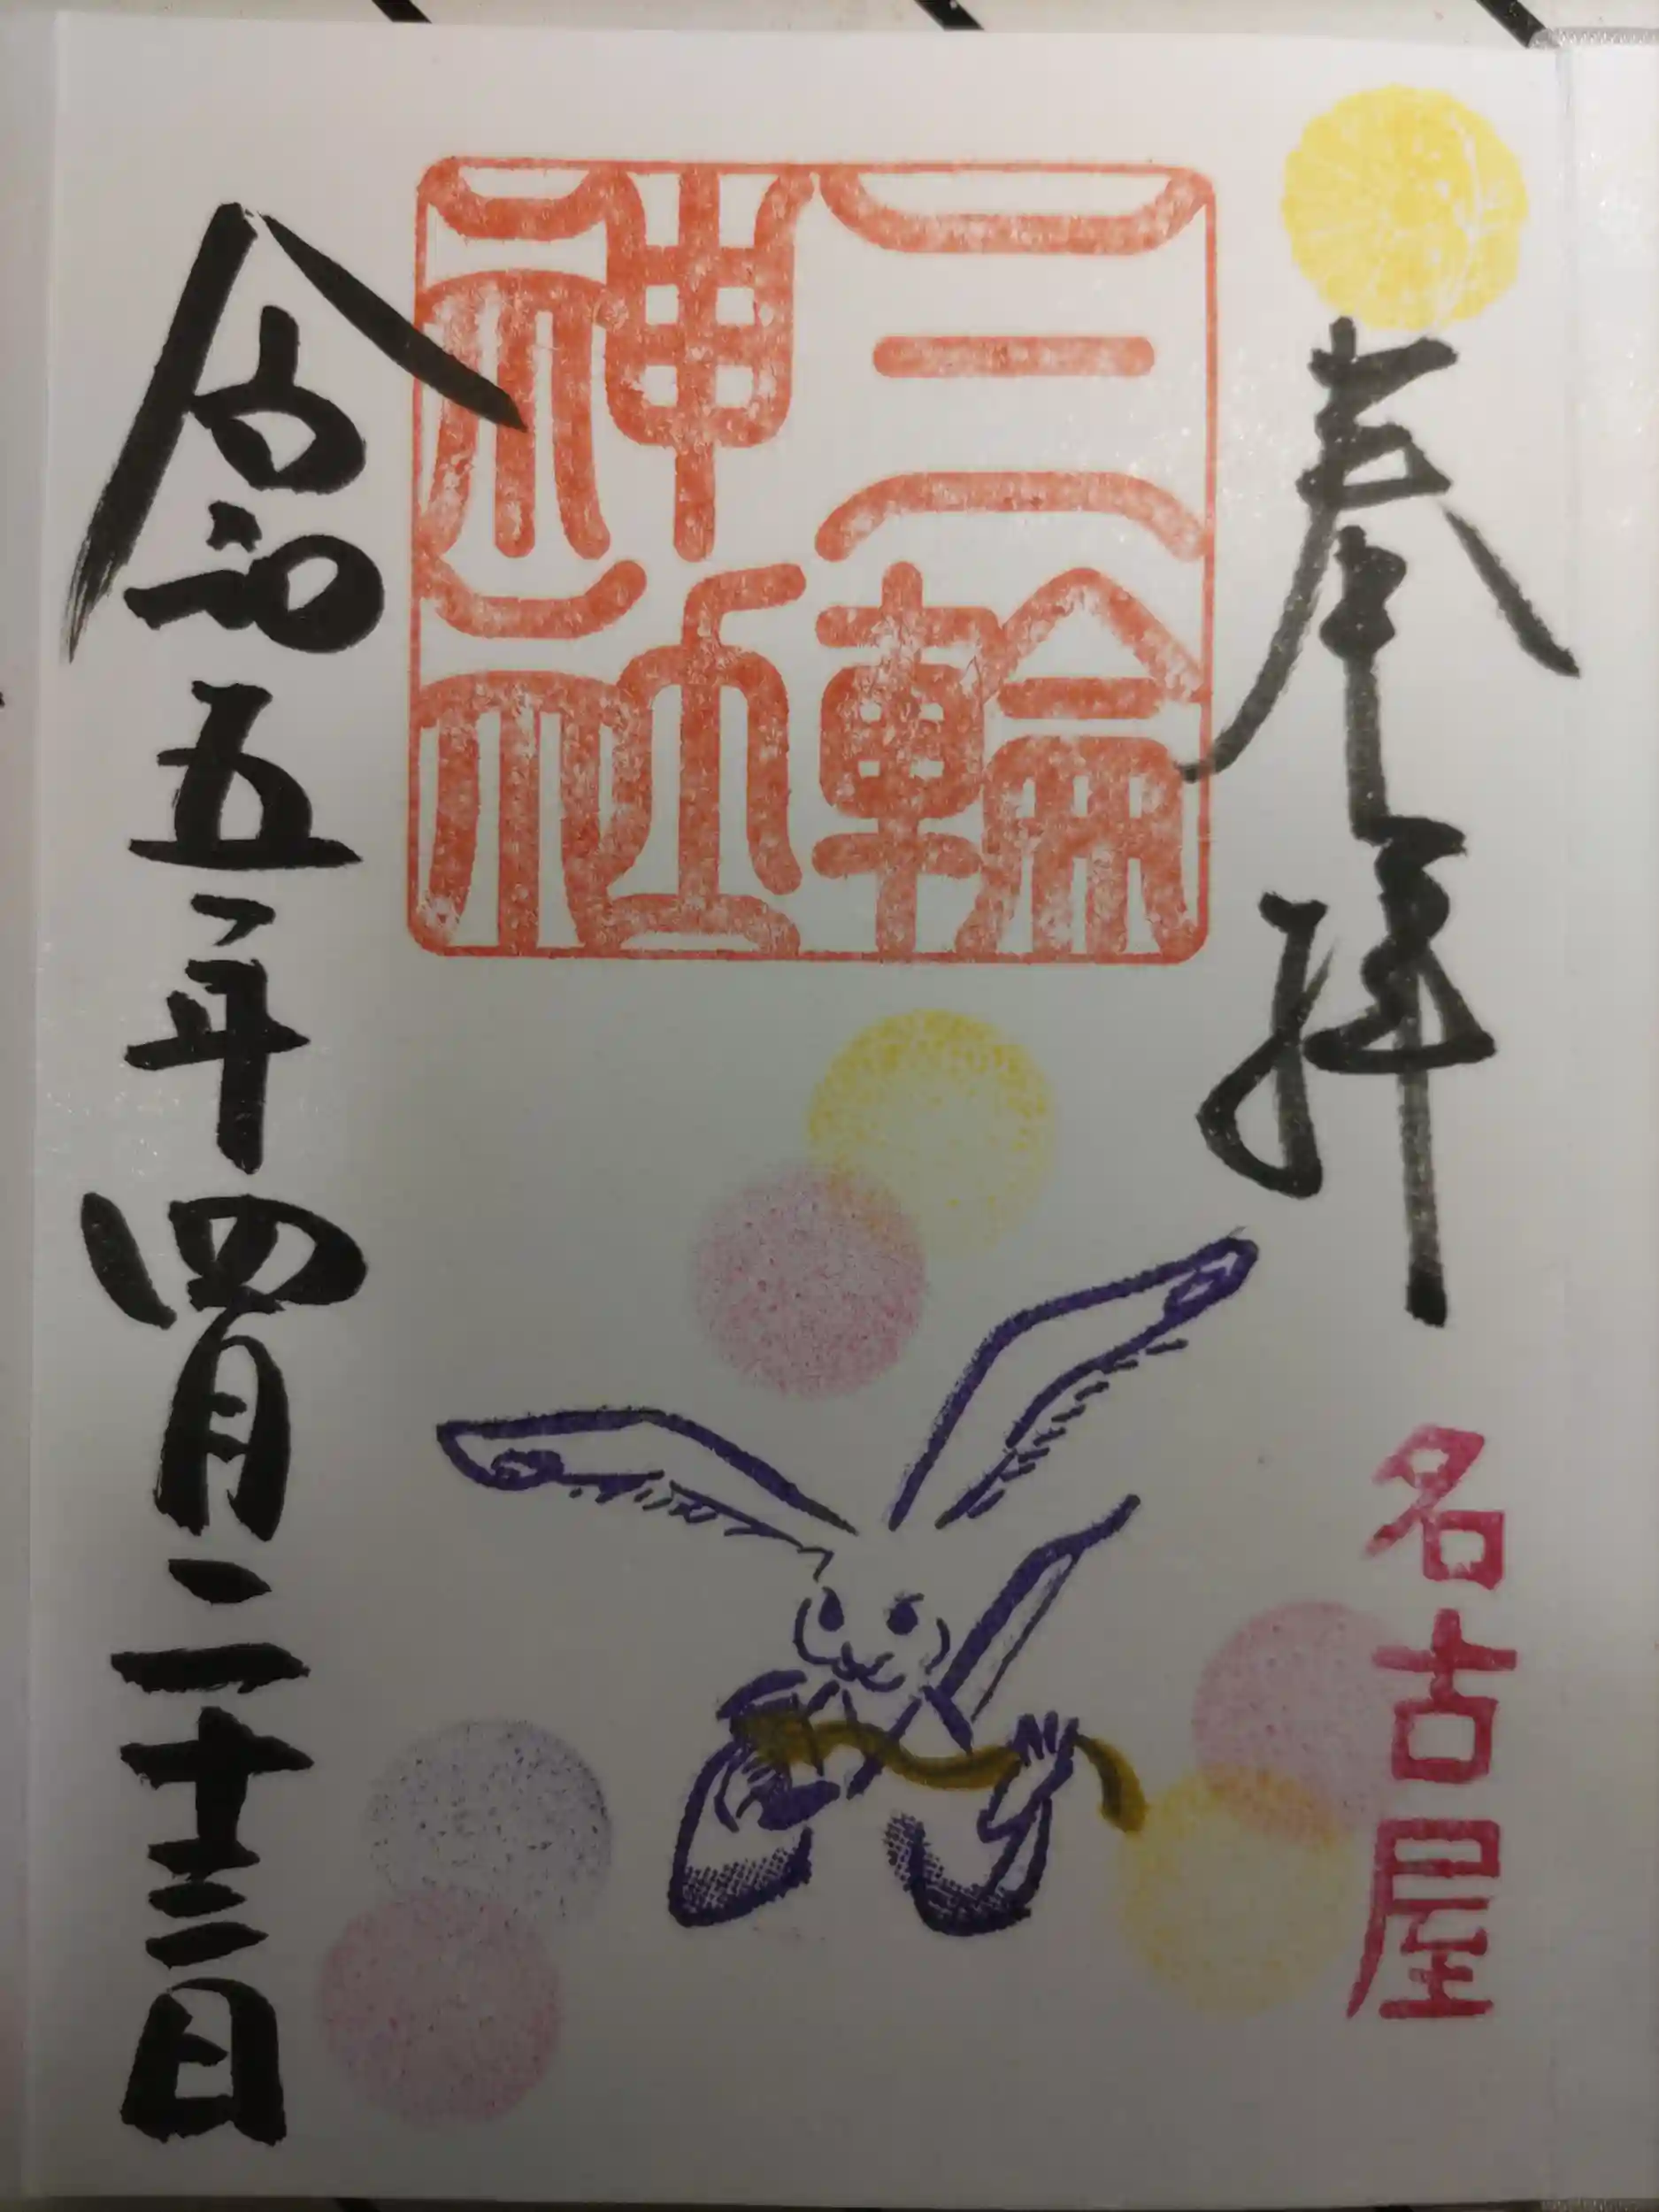 奉拝
名古屋
三輪
神社
令和五年四月二十三日